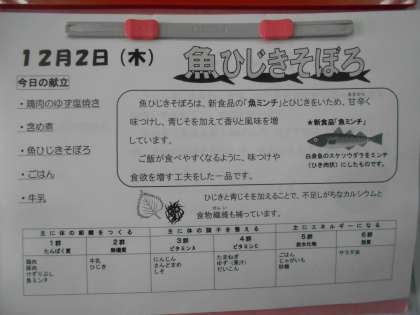 12月2日(木)
魚ひじきそぼろ
今日の献立
・鶏肉のゆず塩焼き
・含め煮
・魚ひじきそぼろ
・ごはん
・牛乳
魚ひじきそぼろは、新食品の「魚ミンチ」とひじきをいため、甘辛く
味つけし、青じそを加えて香りと風味を増
しています。
ご飯が食べやすくなるように、味つけや
食欲を増す工夫をした一品です。
★新食品「魚ミンチ」
白身魚のスケソウダラをミンチ
(ひき肉状)にしたものです。
ひじきと青じそを加えることで、不足しがちなカルシウムと
食物繊維も補っています。
主に体の組織をつくる 主に体の調子を整える 主にエネルギーになる
1群 2群 3群 4群 5群 6群
たんぱく質 無機質 ビタミンA ビタミンC 炭水化物 脂質
鶏肉 牛乳 にんじん たまねぎ ごはん サラダ油
豚肉 ひじき さんどまめ ゆず(果汁) じゃがいも
けずりぶし しそ だいこん 砂糖
魚ミンチ